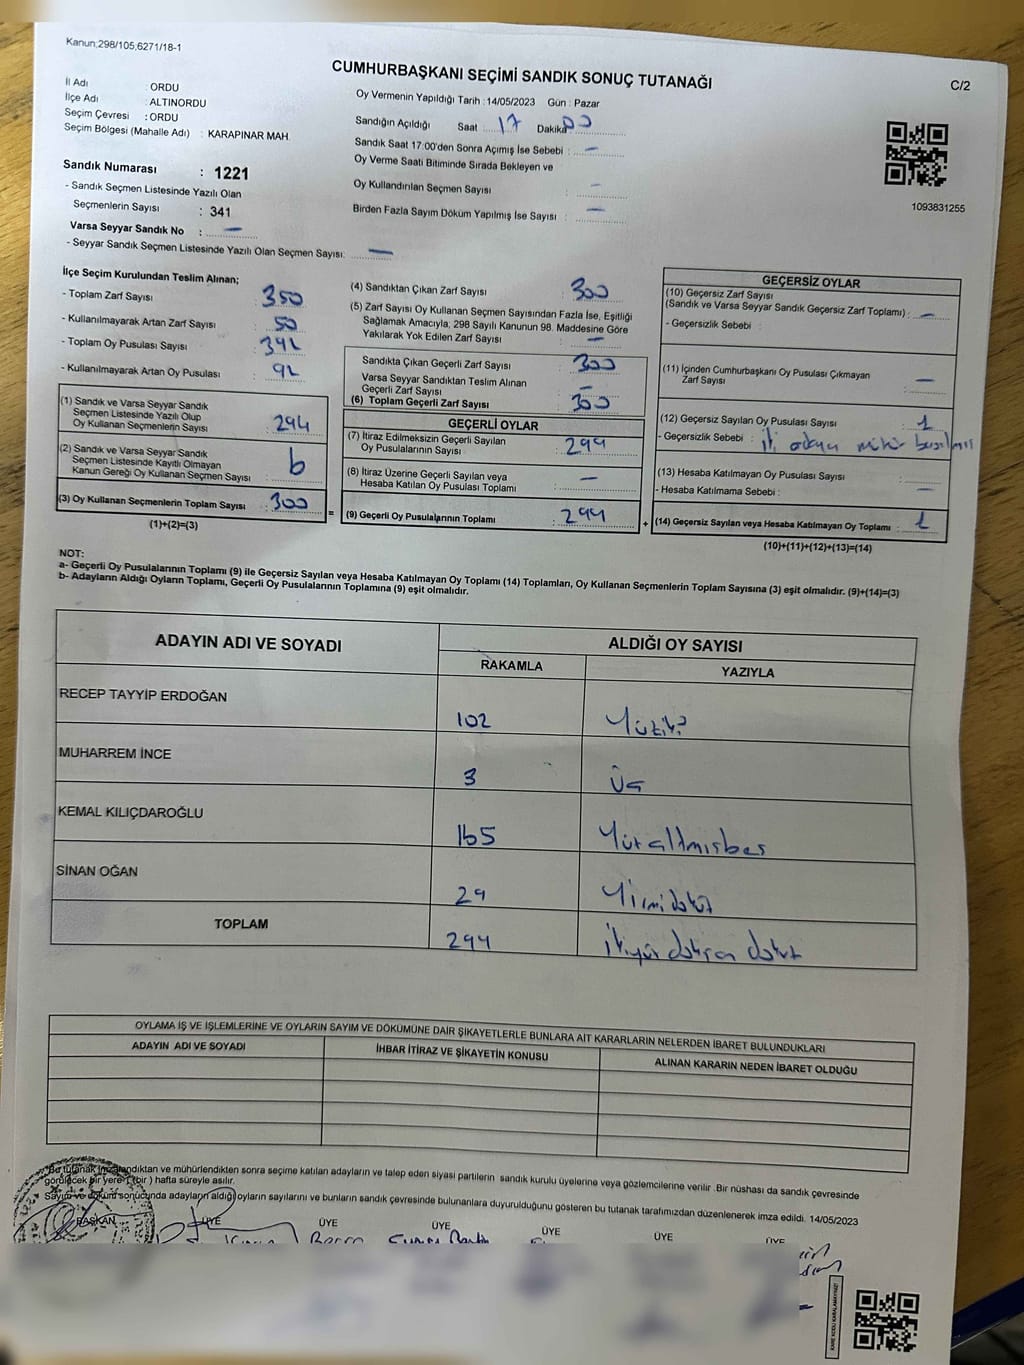 Kanun;298/105;6271/18-1
CUMHURBAŞKANI SEÇİMİ SANDIK SONUÇ TUTANAĞI
C/2
İl Adı : ORDU
İlçe Adı : ALTINORDU
Seçim Çevresi : ORDU
Seçim Bölgesi (Mahalle Adı) : KARAPINAR MAH.
Oy Vermenin Yapıldığı Tarih : 14/05/2023 Gün : Pazar
Sandığın Açıldığı Saat 17 Dakika 00
Sandık Saat 17:00'den Sonra Açımış İse Sebebi : –
Oy Verme Saati Bitiminde Sırada Bekleyen ve
Oy Kullandırılan Seçmen Sayısı : –
Birden Fazla Sayım Döküm Yapılmış İse Sayısı : –
1093831255
Sandık Numarası : 1221
- Sandık Seçmen Listesinde Yazılı Olan
Seçmenlerin Sayısı : 341
Varsa Seyyar Sandık No : –
- Seyyar Sandık Seçmen Listesinde Yazılı Olan Seçmen Sayısı: –
İlçe Seçim Kurulundan Teslim Alınan;
- Toplam Zarf Sayısı : 350
- Kullanılmayarak Artan Zarf Sayısı : 50
- Toplam Oy Pusulası Sayısı : 392
- Kullanılmayarak Artan Oy Pusulası : 92
(1) Sandık ve Varsa Seyyar Sandık
Seçmen Listesinde Yazılı Olup
Oy Kullanan Seçmenlerin Sayısı : 294
(2) Sandık ve Varsa Seyyar Sandık
Seçmen Listesinde Kayıtlı Olmayan
Kanun Gereği Oy Kullanan Seçmen Sayısı : 6
(3) Oy Kullanan Seçmenlerin Toplam Sayısı : 300
(1)+(2)=(3)
(4) Sandıktan Çıkan Zarf Sayısı : 300
(5) Zarf Sayısı Oy Kullanan Seçmen Sayısından Fazla İse, Eşitliği
Sağlamak Amacıyla, 298 Sayılı Kanunun 98. Maddesine Göre
Yakılarak Yok Edilen Zarf Sayısı : –
Sandıkta Çıkan Geçerli Zarf Sayısı : 300
Varsa Seyyar Sandıktan Teslim Alınan
Geçerli Zarf Sayısı : –
(6) Toplam Geçerli Zarf Sayısı : 300
GEÇERLİ OYLAR
(7) İtiraz Edilmeksizin Geçerli Sayılan
Oy Pusulalarının Sayısı : 299
(8) İtiraz Üzerine Geçerli Sayılan veya
Hesaba Katılan Oy Pusulası Toplamı : –
(9) Geçerli Oy Pusulalarının Toplamı : 299
GEÇERSİZ OYLAR
(10) Geçersiz Zarf Sayısı
(Sandık ve Varsa Seyyar Sandık Geçersiz Zarf Toplamı) : –
- Geçersizlik Sebebi :
(11) İçinden Cumhurbaşkanı Oy Pusulası Çıkmayan
Zarf Sayısı : –
(12) Geçersiz Sayılan Oy Pusulası Sayısı : 1
- Geçersizlik Sebebi : mühür basılmış
(13) Hesaba Katılmayan Oy Pusulası Sayısı :
- Hesaba Katılmama Sebebi : –
(14) Geçersiz Sayılan veya Hesaba Katılmayan Oy Toplamı : 1
(10)+(11)+(12)+(13)=(14)
NOT:
a- Geçerli Oy Pusulalarının Toplamı (9) ile Geçersiz Sayılan veya Hesaba Katılmayan Oy Toplamı (14) Toplamları, Oy Kullanan Seçmenlerin Toplam Sayısına (3) eşit olmalıdır. (9)+(14)=(3)
b- Adayların Aldığı Oyların Toplamı, Geçerli Oy Pusulalarının Toplamına (9) eşit olmalıdır.
ADAYIN ADI VE SOYADI ALDIĞI OY SAYISI
RAKAMLA YAZIYLA
RECEP TAYYİP ERDOĞAN 102 Yüziki
MUHARREM İNCE 3 Üç
KEMAL KILIÇDAROĞLU 165 Yüzaltmışbeş
SİNAN OĞAN 29 Yirmidokuz
TOPLAM 299 İkiyüz doksan dokuz
OYLAMA İŞ VE İŞLEMLERİNE VE OYLARIN SAYIM VE DÖKÜMÜNE DAİR ŞİKAYETLERLE BUNLARA AİT KARARLARIN NELERDEN İBARET BULUNDUKLARI
ADAYIN ADI VE SOYADI İHBAR İTİRAZ VE ŞİKAYETİN KONUSU ALINAN KARARIN NEDEN İBARET OLDUĞU
Bu tutanak imzalandıktan ve mühürlendikten sonra seçime katılan adayların ve talep eden siyasi partilerin sandık kurulu üyelerine veya gözlemcilerine verilir .Bir nüshası da sandık çevresinde
görülecek bir yere 1 (bir ) hafta süreyle asılır.
Sayım ve döküm sonucunda adayların aldığı oyların sayılarını ve bunların sandık çevresinde bulunanlara duyurulduğunu gösteren bu tutanak tarafımızdan düzenlenerek imza edildi. 14/05/2023
BAŞKAN ÜYE ÜYE ÜYE ÜYE ÜYE ÜYE